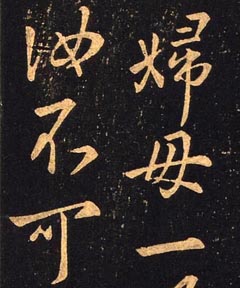 婦母一
汝不可